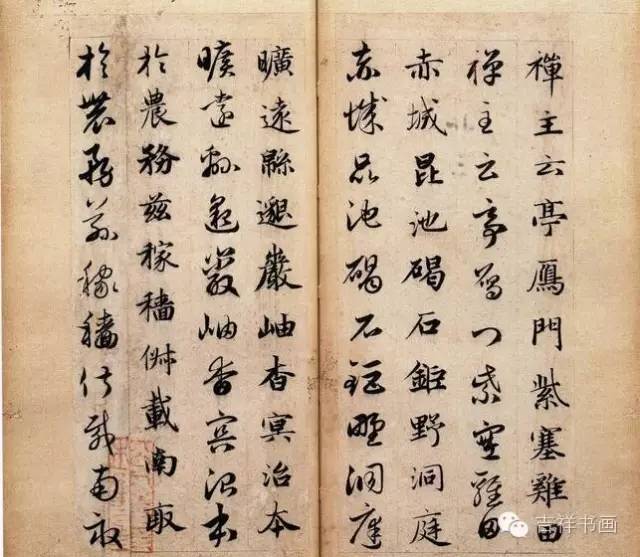 禪主云亭鴈門紫塞雞田
禪主云亭鴈門紫塞雞田
赤城昆池碣石鉅野洞庭
赤城昆池碣石鉅野洞庭
曠遠緜邈巖岫杳冥治本
曠遠緜邈巖岫杳冥治本
於農務茲稼穡俶載南畝
於農務茲稼穡俶載南畝
吉祥书画